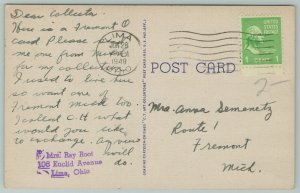 Dear Collector
Here is a Fremont O
card Please send
me one from Mich
for my collection
I used to live here
so want one of
Fremont Mich too.
I collect C.H. what
would you like
to exchange. Any view
will
do.
Mrs. Ray Root
106 Euclid Avenue
Lima, Ohio
LIMA
JUN 28
PM
1949
OHIO
POST CARD
UNITED STATES POSTAGE
1 CENT 1
2
Mrs. Anna Semanetz
Route 1
Fremont
Mich.